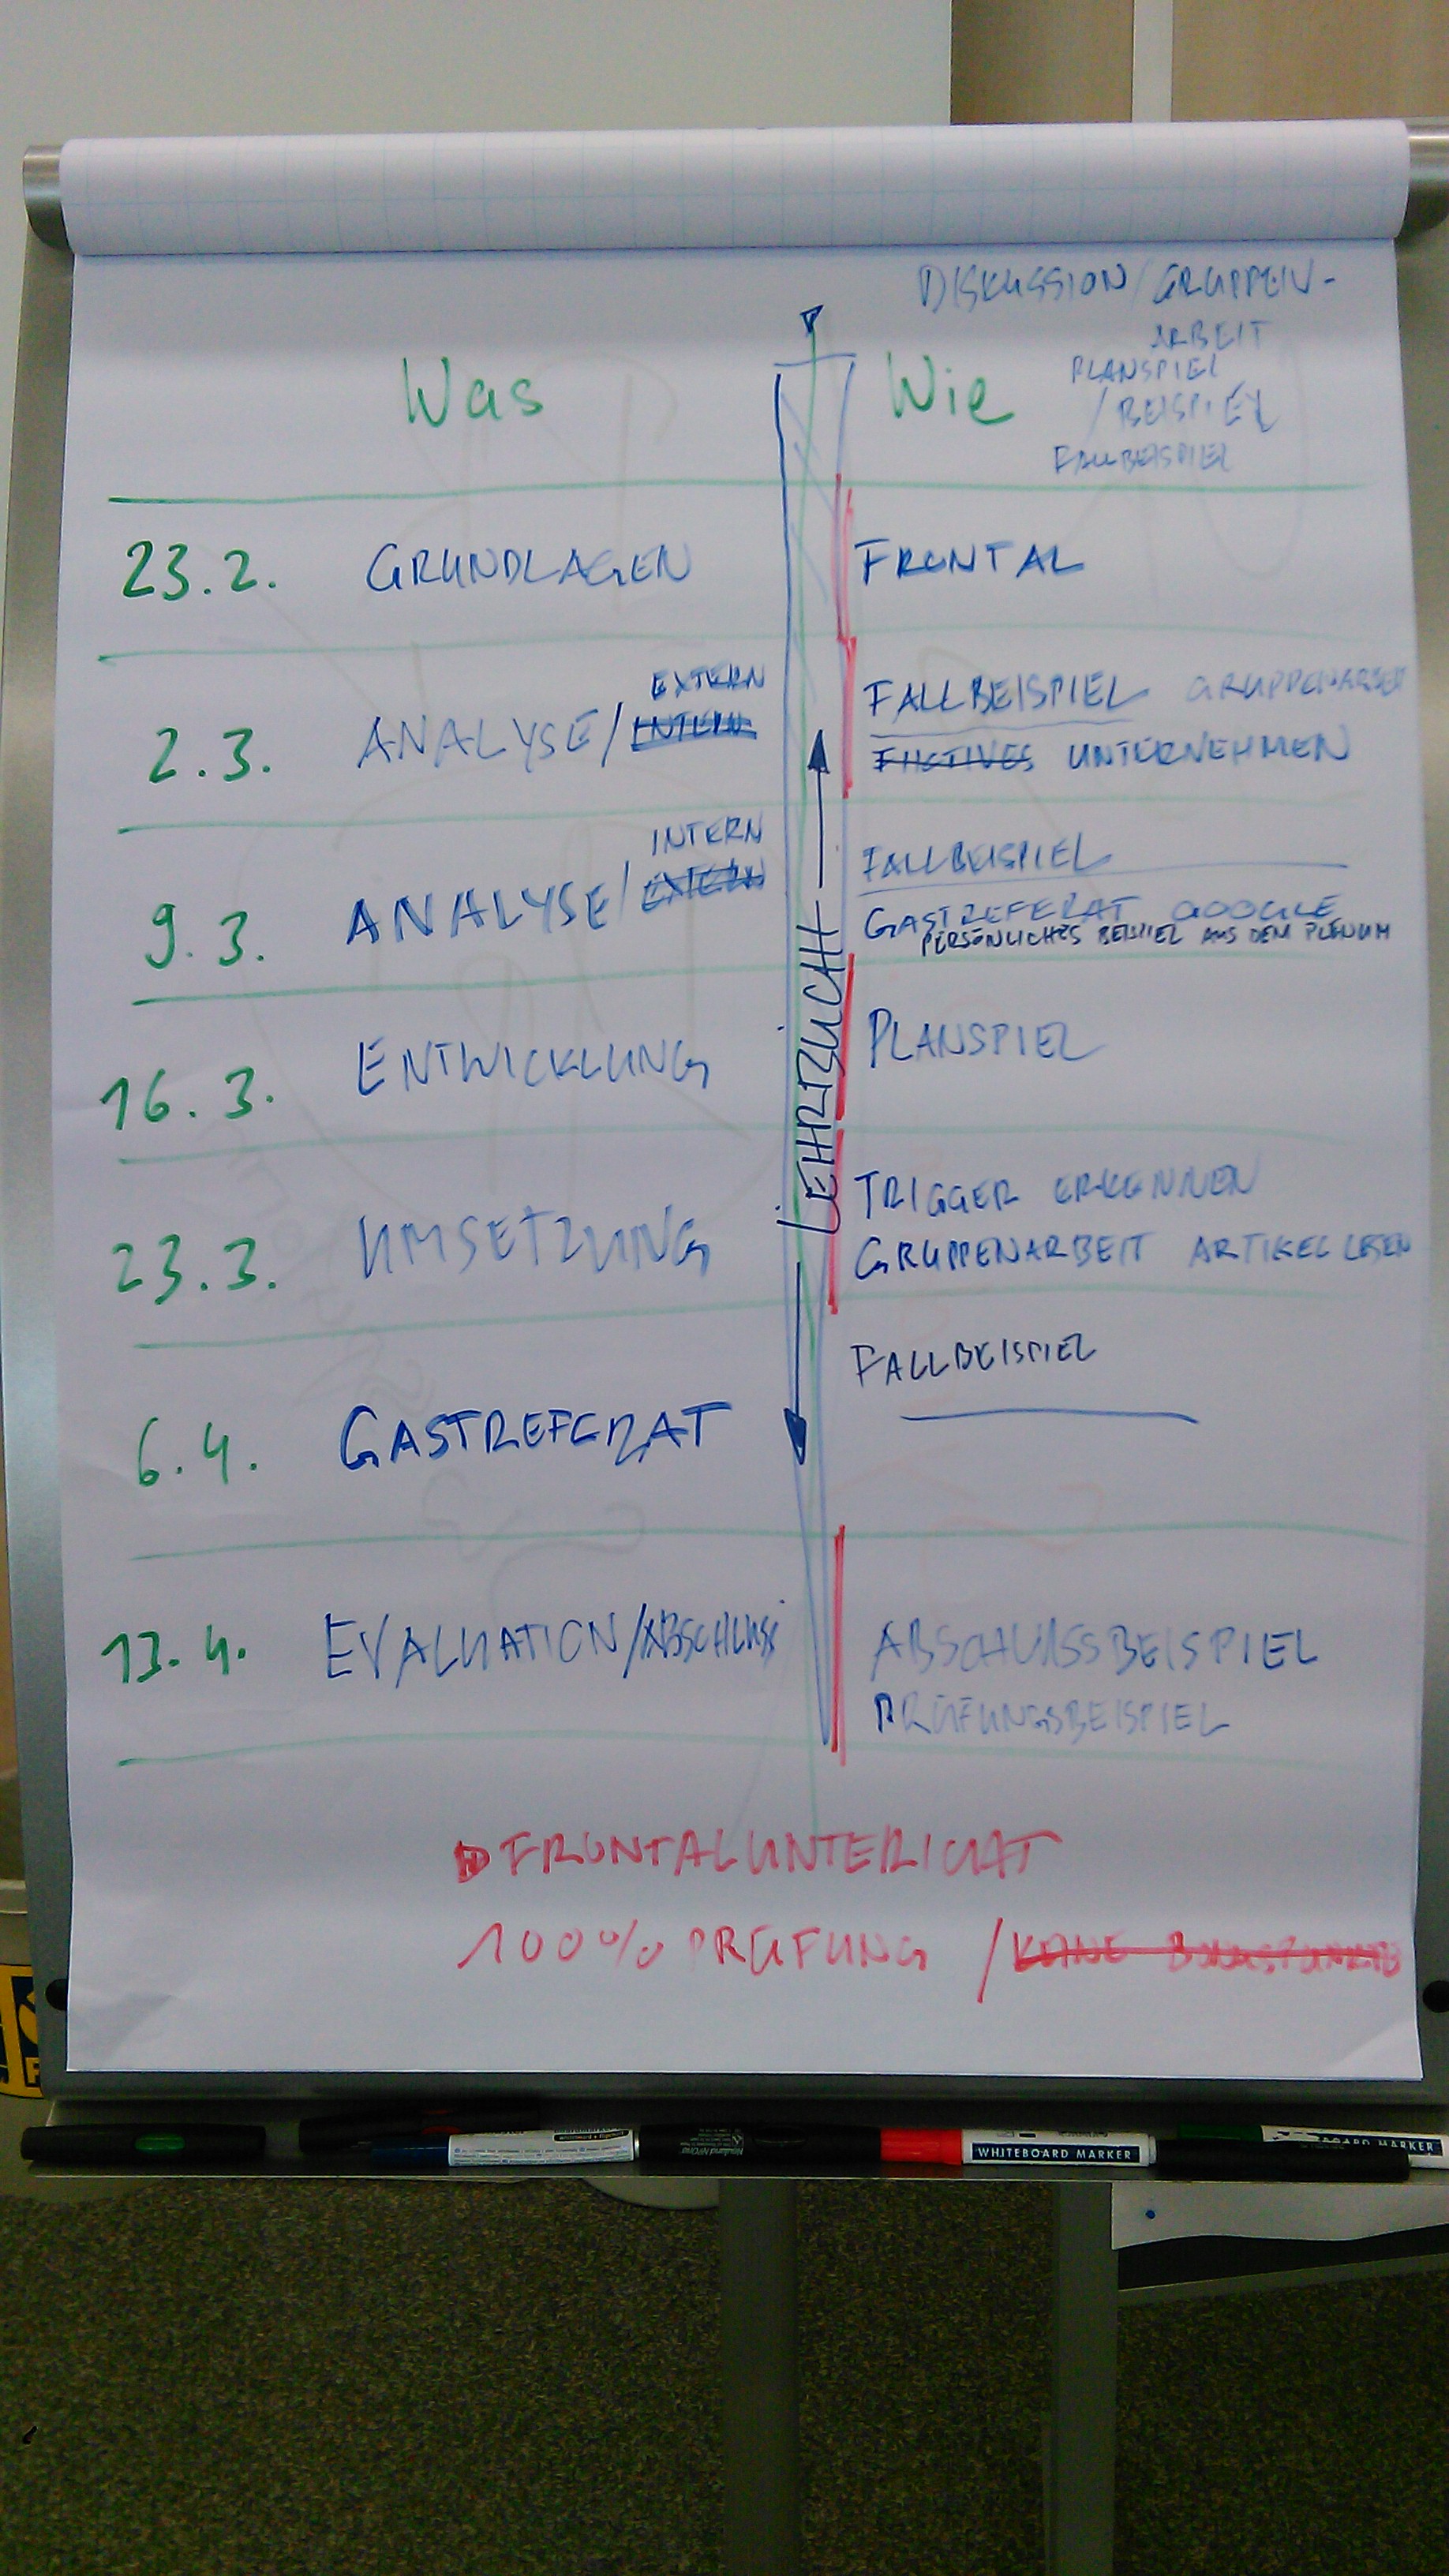 DISKUSSION/GRUPPEN-
ARBEIT
PLANSPIEL
/BEISPIEL
FALLBEISPIEL
Was
Wie
23.2. GRUNDLAGEN
FRONTAL
EXTERN
2.3. ANALYSE/INTERN
FALLBEISPIEL GRUPPENARBEIT
FIKTIVES UNTERNEHMEN
INTERN
9.3. ANALYSE/EXTERN
FALLBEISPIEL
GASTREFERAT GOOGLE
PERSÖNLICHES BEISPIEL AUS DEM PLENUM
LEHRBUCH
16.3. ENTWICKLUNG
PLANSPIEL
23.3. UMSETZUNG
TRIGGER ERKENNEN
GRUPPENARBEIT ARTIKEL LESEN
FALLBEISPIEL
6.4. GASTREFERAT
13.4. EVALUATION/ABSCHLUSS
ABSCHUSSBEISPIEL
PRÜFUNGSBEISPIEL
FRONTALUNTERICHT
100% PRÜFUNG / KEINE BONUSPUNKTE
WHITEBOARD MARKER
BOARD MARKER